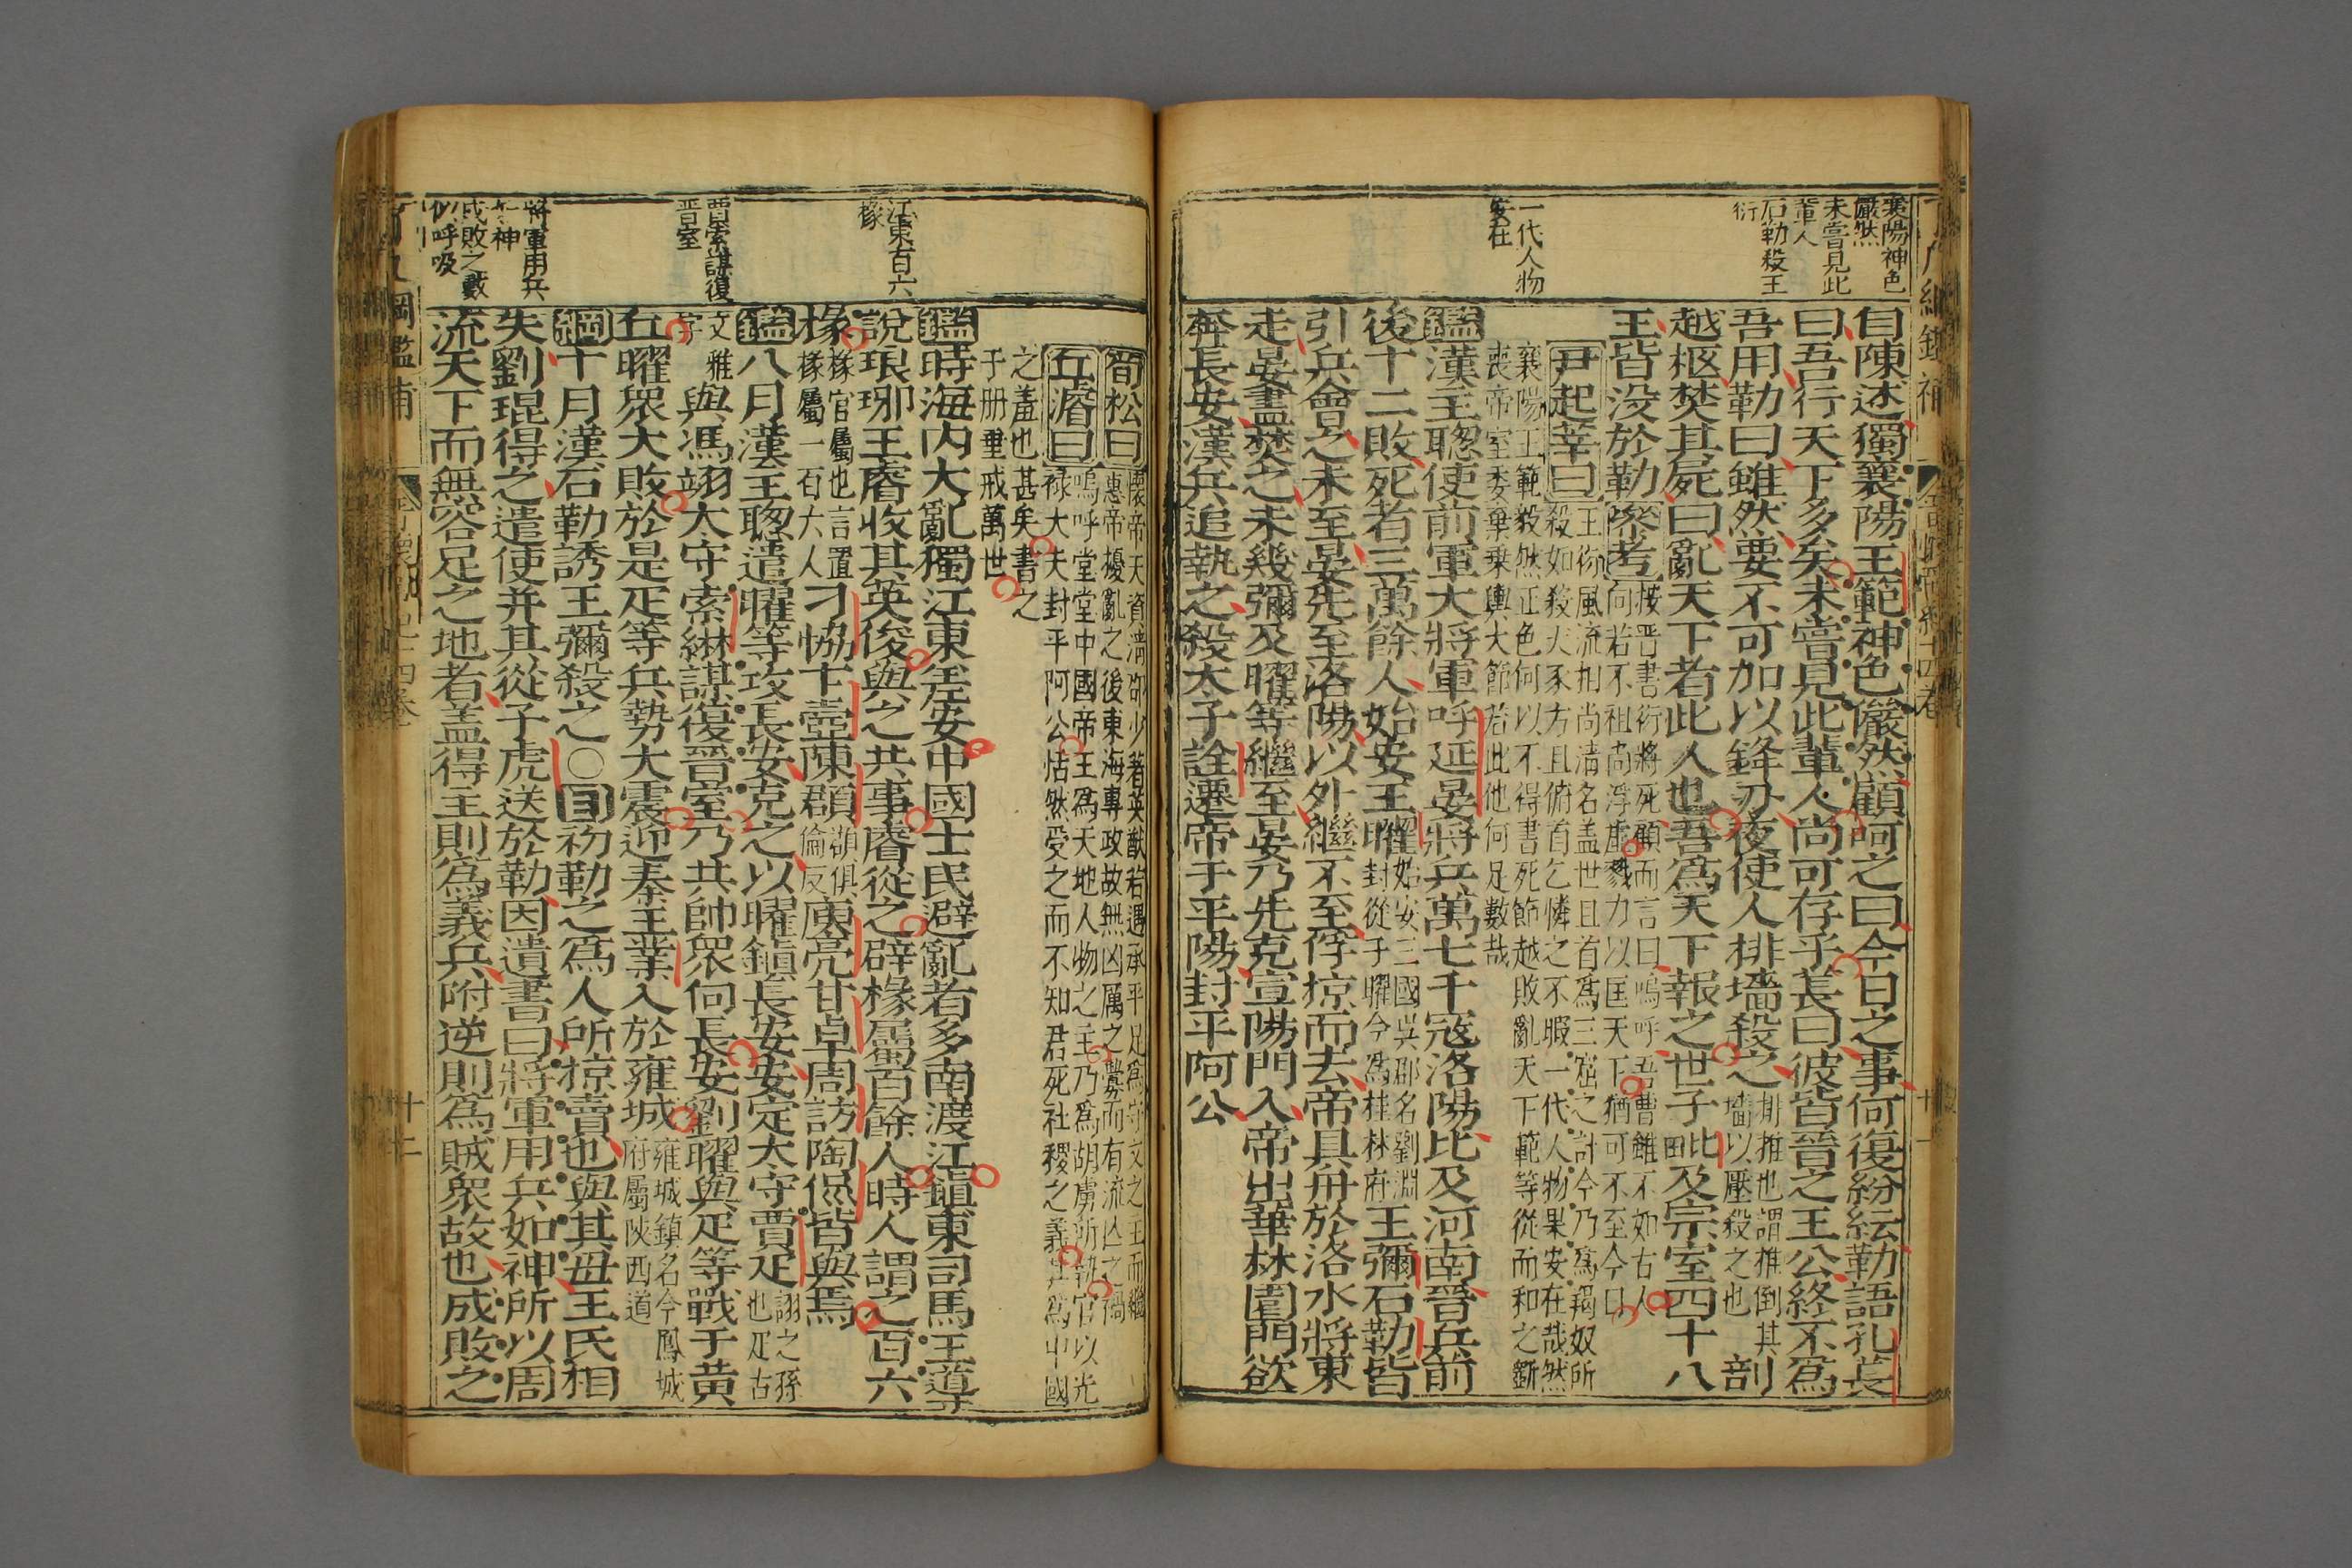 襄陽神色
儼然
未嘗見此
輩人
石勒殺王
衍
一代人物
安在
自陳述獨襄陽王範神色儼然顧呵之曰今日之事何復紛紜勒語孔萇
曰吾行天下多矣未嘗見此輩人尚可存乎萇曰彼皆晉之王公終不爲
吾用勒曰雖然要不可加以鋒刃夜使人排墻殺之排推也謂推倒其墻以壓殺之也剖
越柩焚其屍曰亂天下者此人也吾爲天下報之世子毗及宗室四十八
王皆没於勒
叅考
按晋書衍將死顧而言曰嗚呼吾曹雖不如古人
向若不祖尚浮虚戮力以匡天下猶可不至今日
尹起莘曰
王衍風流相尚清名盖世且首爲三窟之計今乃爲羯奴所
殺如殺犬豕方且俯首乞憐之不暇一代人物果安在哉然
襄陽王範毅然正色何以不得書死節越敗亂天下範等從而和之斷
喪帝室委棄乗輿大節若此他何足數哉
鑑漢王聰使前軍大將軍呼延晏將兵萬七千寇洛陽比及河南晉兵前
後十二敗死者三萬餘人始安王曜始安三國吳郡名劉淵封從子曜今為桂林府王彌石勒皆
引兵會之未至晏先至洛陽以外繼不至俘掠而去帝具舟於洛水將東
走晏盡焚之未幾彌及曜等繼至晏乃先克宣陽門入帝出華林園門欲
奔長安漢兵追執之殺太子詮遷帝于平陽封平阿公
江東百六
掾
賈索謀復
晋室
將軍用兵
如神
成敗之數
似呼吸
荀松曰
懷帝天資清劭少著英猷若遇承平足爲守文之主而繼
惠帝擾亂之後東海專政故無凶厲之釁而有流亾之禍
丘濬曰
嗚呼堂堂中國帝王爲天地人物之主乃爲胡虜所執官以光
禄大夫封平阿公恬然受之而不知君死社稷之義其爲中國
之羞也甚矣書之
于册垂戒萬世
鑑時海内大亂獨江東差安中國士民避亂者多南渡江鎮東司馬王導
說琅琊王睿收其英俊與之共事睿從之辟掾屬百餘人時人謂之百六
掾掾官屬也言置掾屬一百六人刁協卞壼陳頵頵俱倫反庾亮甘卓周訪陶侃皆與焉
鑑八月漢王聰遣曜等攻長安克之以曜鎮長安安定太守賈疋詡之孫也疋古
文雅字與馮翊太守索綝謀復晋室乃共帥衆向長安劉曜與疋等戰于黄
丘曜衆大敗於是疋等兵勢大震迎秦王業入於雍城雍城鎮名今鳳城府屬陝西道
綱十月漢石勒誘王彌殺之〇目初勒之爲人所掠賣也與其母王氏相
失劉琨得之遣使并其從子虎送於勒因遺書曰將軍用兵如神所以周
流天下而無容足之地者盖得主則爲義兵附逆則爲賊衆故也成敗之
十二